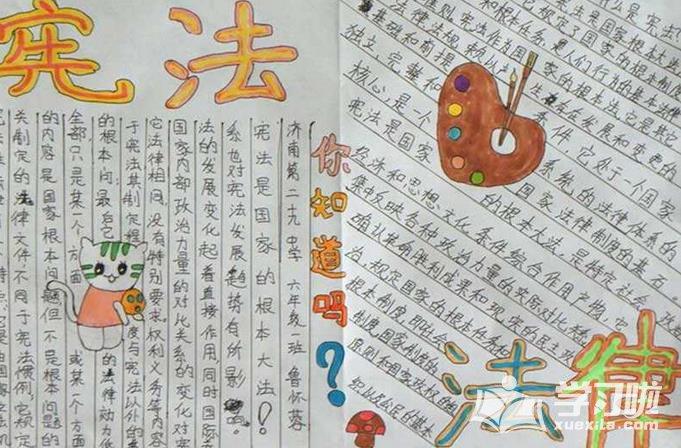 宪法
关制定的法律文件不同于宪法惯例，它规定
的内容是国家根本问题但不是根本问题的
全部只是某一个方面 或某一个方面
的根本问 最后它 的法律动力低
于宪法其制定程 度与宪法以外的其
它法律相同，没有特别要求权利义务等内容
国家内部政治力量的对比关系的变化对宪
法的发展变化起着直接作用同时国际关
系也对宪法发展趋势有所影响
宪法是国家的根本大法！
济南第二九中学 六年级一班 鲁怀蓉
你知道吗？
和根本任务是人们行为的基本法律
宪法作为国家的根本法它是其它
法律法规
基础和前提
生存在发展和变更的
独立、完整和 条件，它处于一个国家
核心，是一个 系统的法律体系的
宪法是国家 国家法律制度的基石
的根本大法，是特定社会政治
经济和思想文化条件综合作用产物，它
集中反映各种政治力量的实际对比关系
确认革命胜利成果和现实的民主政
治，规定国家的根本任务和
根本制度，即社会
制度国家制度的
原则和国家政权的组
织以及公民的基本
法律
学习啦
xuexila.com